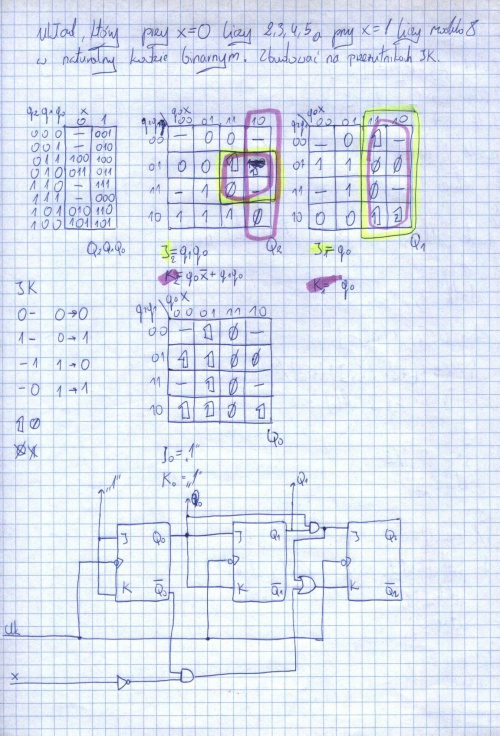 Układ, który przy x=0 liczy 2,3,4,5, a przy x=1 liczy modulo 8
w naturalny kodzie binarnym. Zbudować na przerzutnikach JK.
q2 q1 q0 x
0 1
000 — 001
001 — 010
011 100 100
010 011 011
110 — 111
111 — 000
101 010 110
100 101 101
Q2 Q1 Q0
q0x
00 01 11 10
00 — 0 0 —
01 0 0 1
11 — 1 0 —
10 1 1 1 0
Q2
J2=q1q0
K2=q0x̅+q1q0
q0x
00 01 11 10
00 — 0 1 —
01 1 1 0 0
11 — 1 0 —
10 0 0 1 1
Q1
J1=q0
K1= q0
JK
0— 0→0
1— 0→1
—1 1→0
—0 1→1
1 0
q0x
00 01 11 10
00 — 1 0 —
01 1 1 0 0
11 — 1 0 —
10 1 1 0 1
Q0
J0="1"
K0="1"
"1" Q0 Q1
J Q0 J Q1 J
K Q̅0 K Q̅1 K Q̅2
x